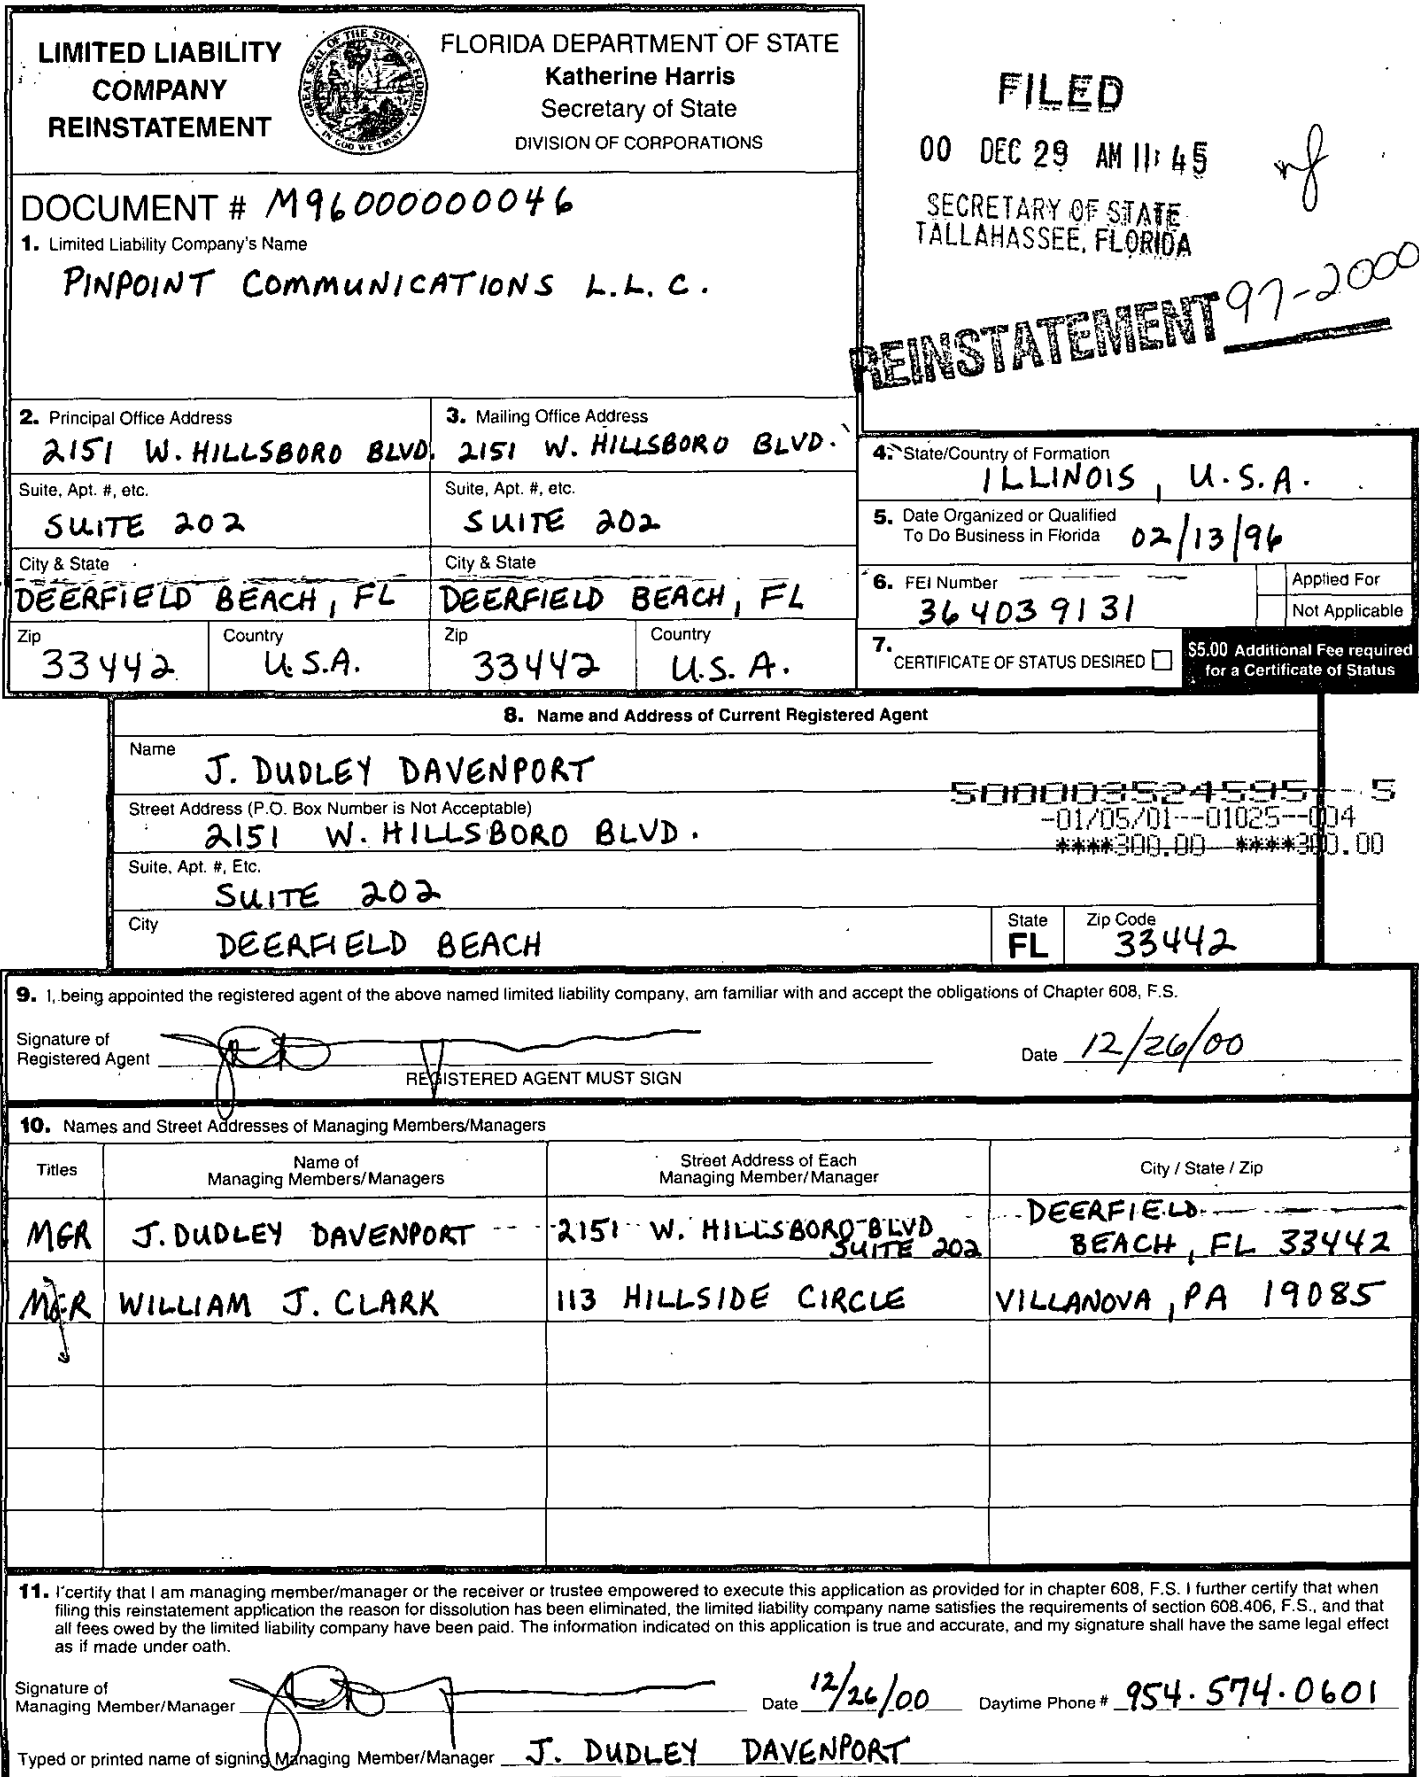 LIMITED LIABILITY
COMPANY
REINSTATEMENT
GREAT SEAL OF THE STATE OF FLORIDA
IN GOD WE TRUST
FLORIDA DEPARTMENT OF STATE
Katherine Harris
Secretary of State
DIVISION OF CORPORATIONS
FILED
00 DEC 29 AM 11:45
SECRETARY OF STATE
TALLAHASSEE, FLORIDA
REINSTATEMENT 97-2000
DOCUMENT # M96000000046
1. Limited Liability Company's Name
PINPOINT COMMUNICATIONS L.L.C.
2. Principal Office Address
2151 W. HILLSBORO BLVD.
Suite, Apt. #, etc.
SUITE 202
City & State
DEERFIELD BEACH, FL
Zip Country
33442 U.S.A.
3. Mailing Office Address
2151 W. HILLSBORO BLVD.
Suite, Apt. #, etc.
SUITE 202
City & State
DEERFIELD BEACH, FL
Zip Country
33442 U.S.A.
4. State/Country of Formation
ILLINOIS, U.S.A.
5. Date Organized or Qualified
To Do Business in Florida 02/13/96
6. FEI Number
364039131
Applied For
Not Applicable
7. CERTIFICATE OF STATUS DESIRED
$5.00 Additional Fee required
for a Certificate of Status
8. Name and Address of Current Registered Agent
Name
J. DUDLEY DAVENPORT
Street Address (P.O. Box Number is Not Acceptable)
2151 W. HILLSBORO BLVD.
500003524595--5
-01/05/01--01025--004
****300.00 ****300.00
Suite, Apt. #, Etc.
SUITE 202
City State Zip Code
DEERFIELD BEACH FL 33442
9. I, being appointed the registered agent of the above named limited liability company, am familiar with and accept the obligations of Chapter 608, F.S.
Signature of
Registered Agent
Date 12/26/00
REGISTERED AGENT MUST SIGN
10. Names and Street Addresses of Managing Members/Managers
Titles
Name of
Managing Members/Managers
Street Address of Each
Managing Member/Manager
City / State / Zip
MGR J. DUDLEY DAVENPORT 2151 W. HILLSBORO BLVD SUITE 202 DEERFIELD BEACH, FL 33442
MGR WILLIAM J. CLARK 113 HILLSIDE CIRCLE VILLANOVA, PA 19085
11. I certify that I am managing member/manager or the receiver or trustee empowered to execute this application as provided for in chapter 608, F.S. I further certify that when
filing this reinstatement application the reason for dissolution has been eliminated, the limited liability company name satisfies the requirements of section 608.406, F.S., and that
all fees owed by the limited liability company have been paid. The information indicated on this application is true and accurate, and my signature shall have the same legal effect
as if made under oath.
Signature of
Managing Member/Manager
Date 12/26/00 Daytime Phone # 954.574.0601
Typed or printed name of signing Managing Member/Manager J. DUDLEY DAVENPORT